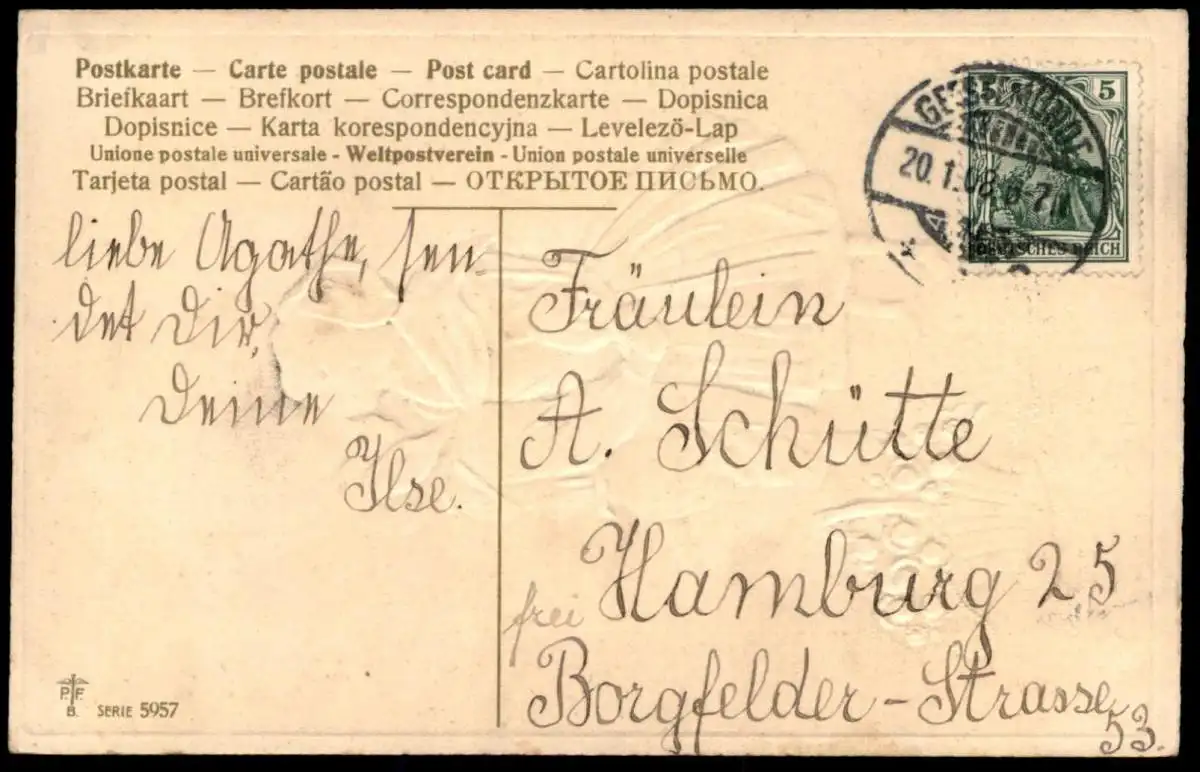 Postkarte — Carte postale — Post card — Cartolina postale
Briefkaart — Brefkort — Correspondenzkarte — Dopisnica
Dopisnice — Karta korespondencyjna — Levelező-Lap
Unione postale universale - Weltpostverein - Union postale universelle
Tarjeta postal — Cartão postal — ОТКРЫТОЕ ПИСЬМО.
5 5
DEUTSCHES REICH
GEESTEMÜNDE
20.1.08. 6-7N
liebe Agathe, sen-
det Dir,
Deine
Ilse.
Fräulein
A. Schütte
frei Hamburg 25
Borgfelder-Strasse
53.
P.F.
B. SERIE 5957